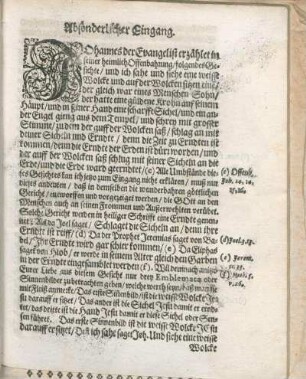 Absonderlicher Eingang.
JOhannes der Evangelist erzählet in
seiner heimlich Offenbahrung, folgendes Ge-
sichte, und ich sahe und siehe eine weisse
Wolcke und auff der Wolcken sitzen einen/
der gleich war eines Menschen Sohn/
der hatte eine güldene Krohn auff seinem
Häupt/ und in seiner Hand eine scharffe Sichel/ und ein an-
der Engel gieng aus dem Tempel/ und schrey mit grosser
Stimme/ zu dem der auff der Wolcken saß/ schlag an mit
deiner Sicheln und erndte/ denn die Zeit zu Erndten ist
kommen/ denn die Erndte der Erden ist dürr worden/ und
der auff der Wolcken saß schlug mit seiner Sicheln an die
Erde/ und die Erde ward geerndtet/ Alle Umbstände die-
ses Gesichtes
dieses andeuten/ daß in demselben die wunderbahren göttlichen
Gericht/ entworffen und vorgebildet werden/ die GOtt an den
Menschen auch an seinen Frommen und Außerwehlten verübet.
Solche Gericht werden in heiliger Schrifft eine Erndte genen-
net: Also da Joel saget/ Schlaget die Sicheln an/ denn ihre
Erndte ist reiff Da der Prophet Jeremias saget von Ba-
bel/ Ihr Erndte wird gar schier kommen/ Da Eliphas
saget von Hiob/ er werde in seinem Alter gleich den Garben
in der Erndte eingesamblet werden
Euer Liebe aus diesem Gesicht nur drey Emblemata oder
Sinnebilder zubetrachten geben/
Das erste Sinnenbild/ ist die weisse Wolcke
darauff er sitzet/ Das ander ist die Sichel
das dritte ist die Hand
Das erste Sinnenbild ist die weisse Wolcke
darauff er sitzet/ Da ich sahe sagt Joh. Und siehe eine weisse
Wolcke